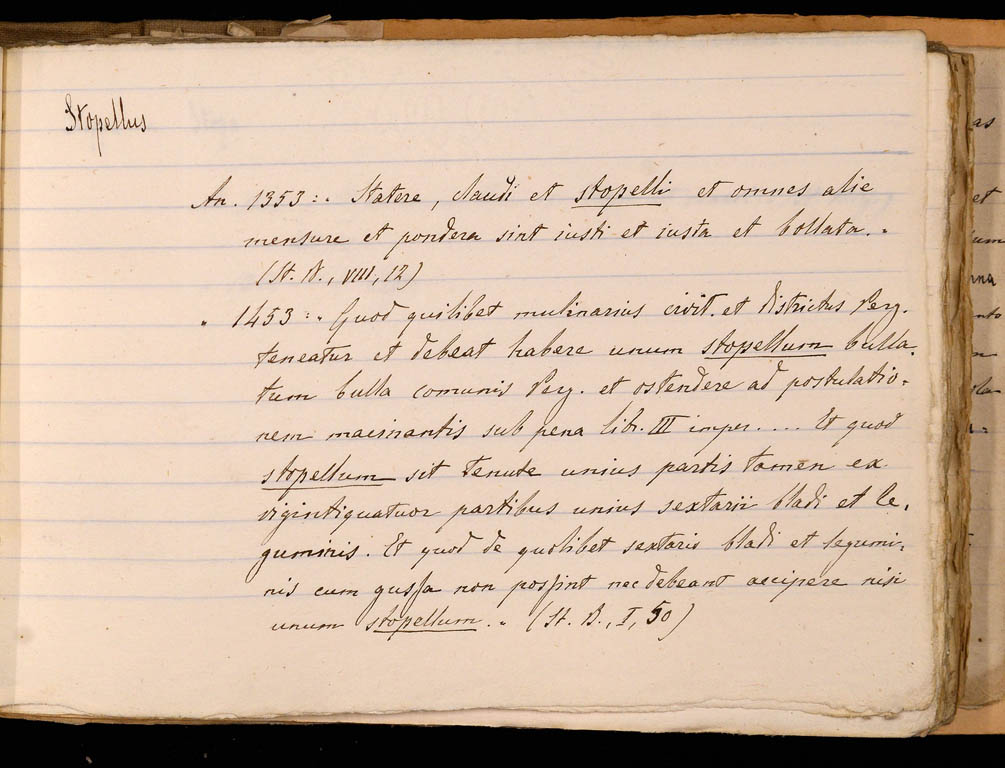 Stopellus
An. 1353: „ Statere, claudi et stopelli et omnes alie
mensure et pondera sint iusti et iusta et bollata. „
(St. B., VIII, 12)
„ 1453: „ Quod quilibet mulinarius civit. et districtus Perg.
teneatur et debeat habere unum stopellum bulla-
tum bulla comunis Perg. et ostendere ad postulatio-
nem macinantis sub pena libr. III imper. ... Et quod
stopellum sit tenute unius partis tamen ex
vigintiquatuor partibus unius sextarii bladi et le-
guminis. Et quod de quolibet sextario bladi et legumi-
nis cum gussa non possint nec debeant accipere nisi
unum stopellum. „ (St. B., I, 50)
as
et